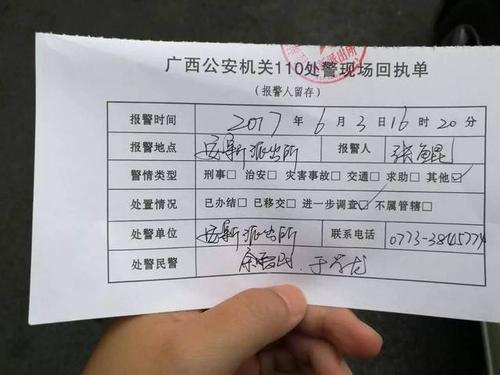 广西公安机关110处警现场回执单
(报警人留存)
报警时间 2017年6月3日16时20分
报警地点 派出所 报警人 张鲲
警情类型 刑事□ 治安□ 灾害事故□ 交通□ 求助□ 其他☑
处置情况 已办结□ 已移交□ 进一步调查☑ 不属管辖□
处警单位 派出所 联系电话 0773-3845774
处警民警